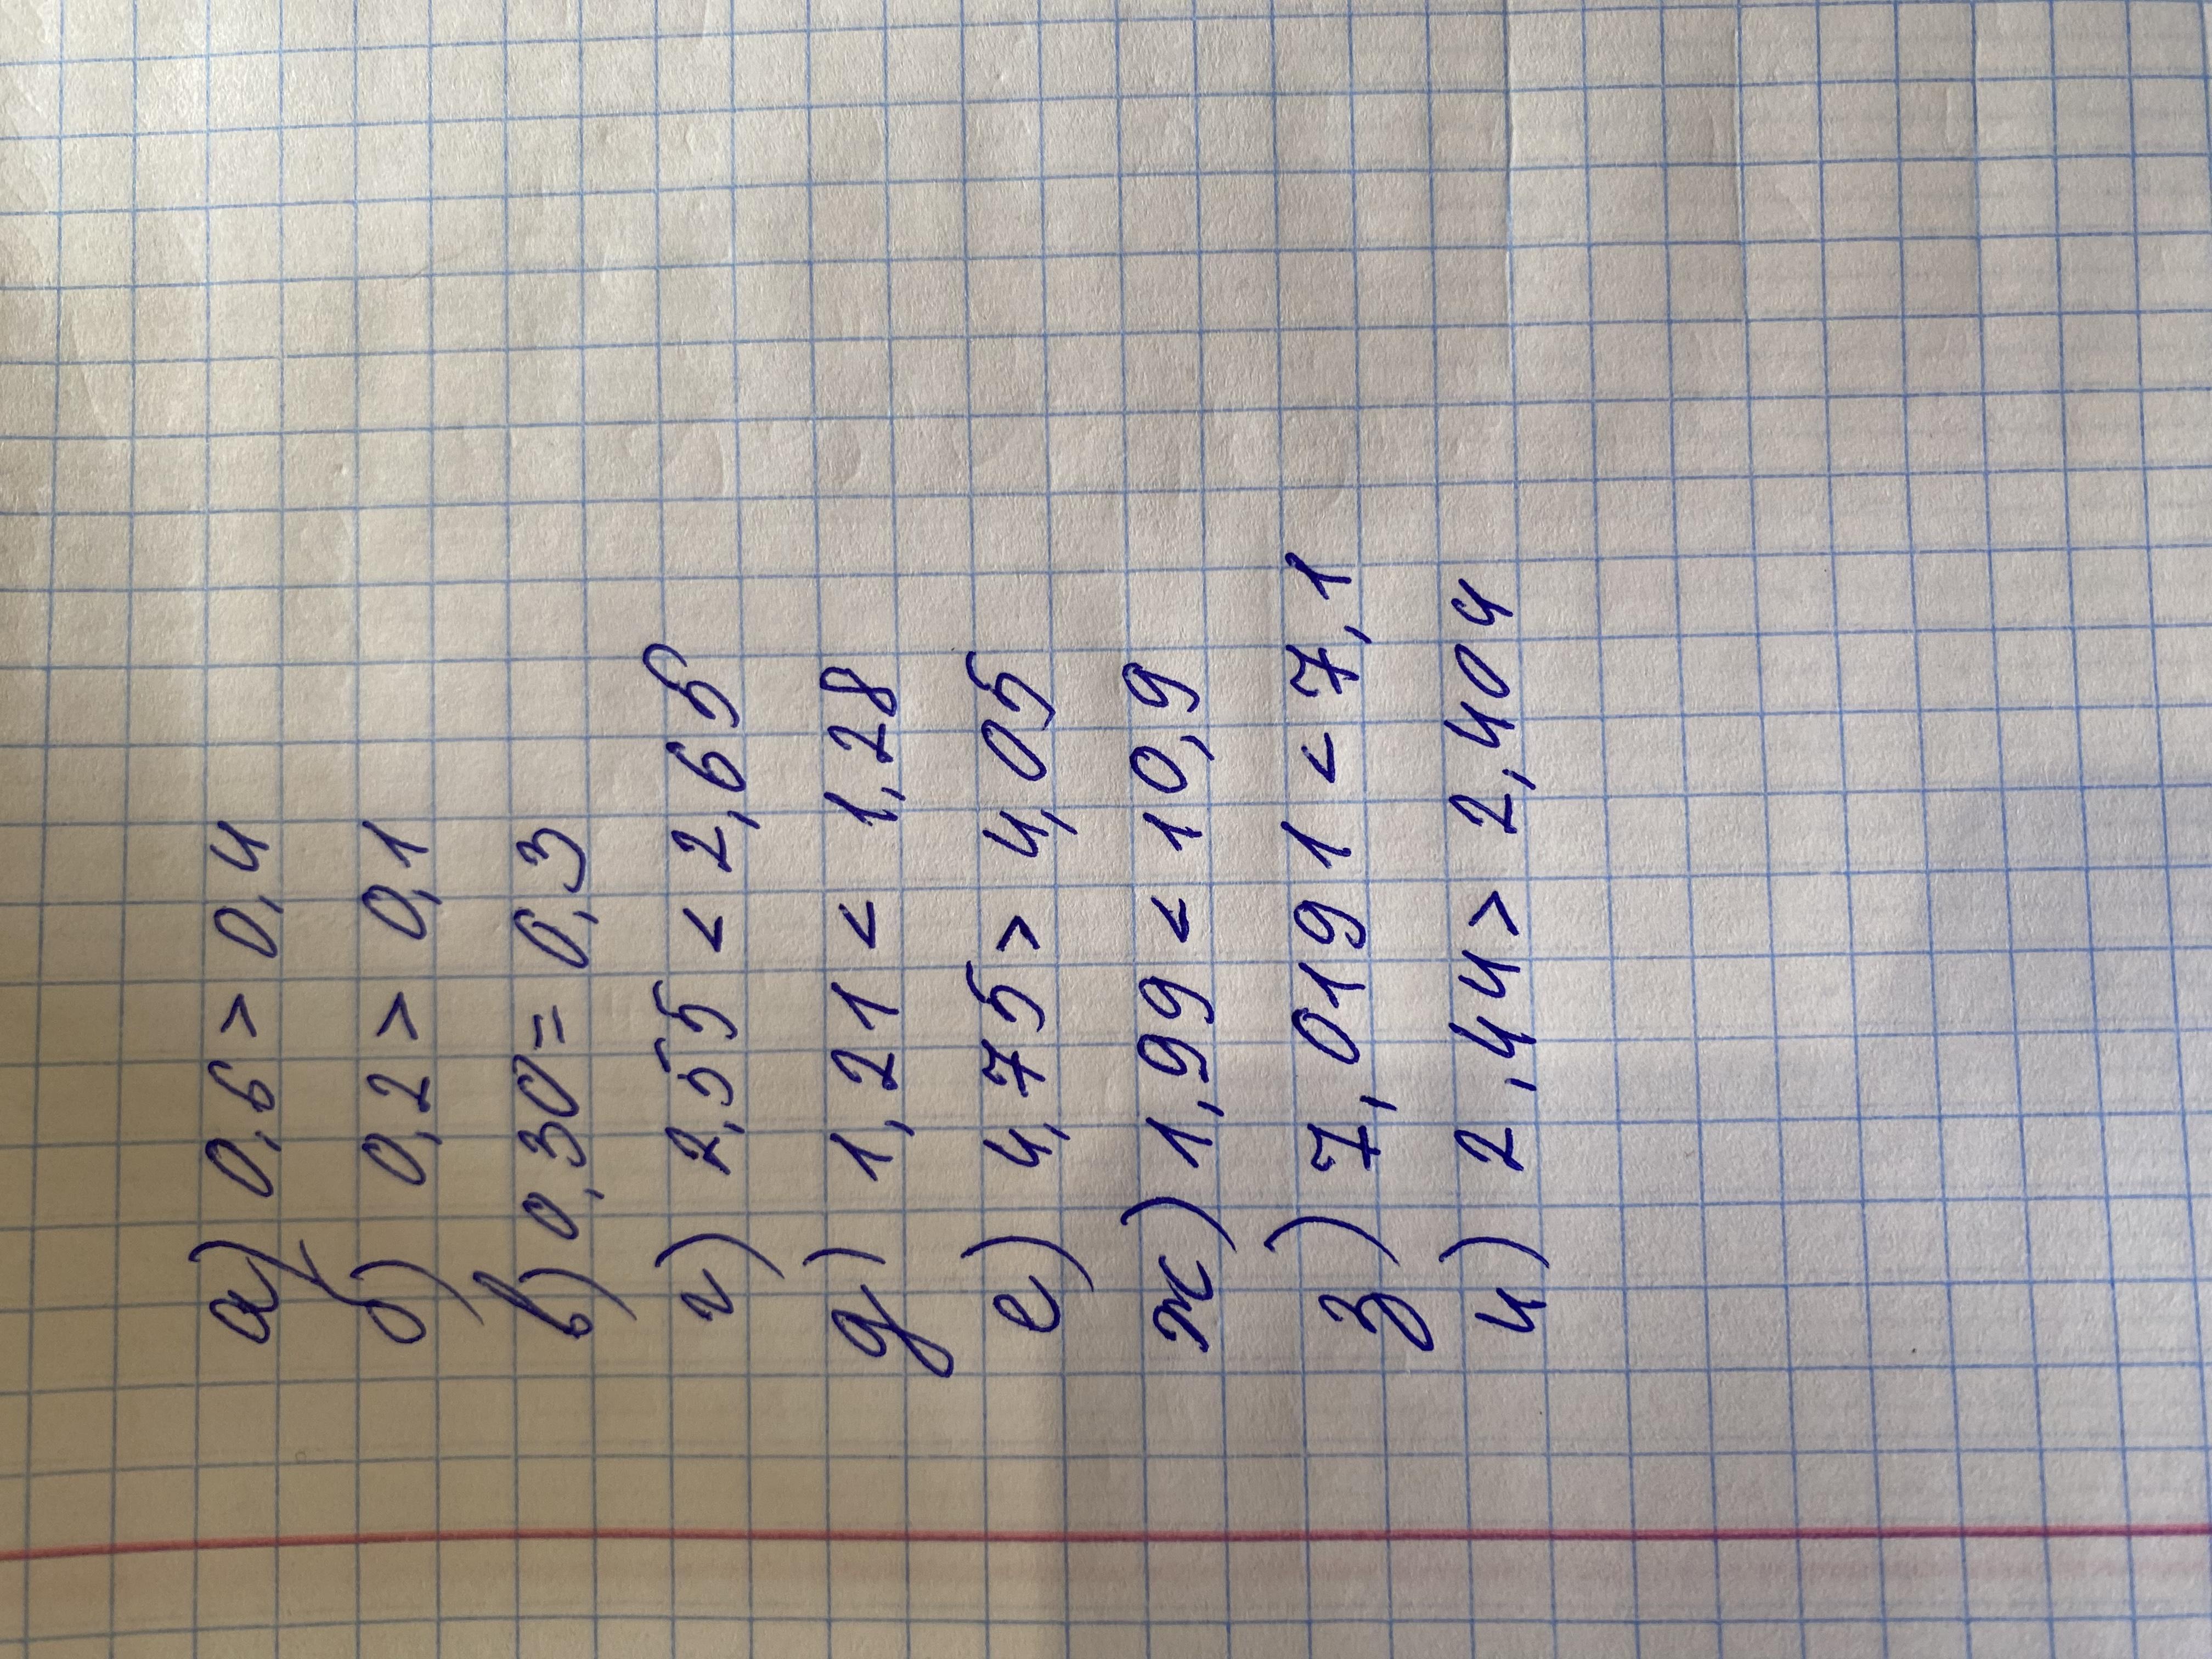 а) 0,6 > 0,4
б) 0,2 > 0,1
в) 0,30 = 0,3
г) 2,55 < 2,65
д) 1,21 < 1,28
е) 4,75 > 4,05
ж) 1,99 < 10,9
з) 7,0191 < 7,1
и) 2,44 > 2,404